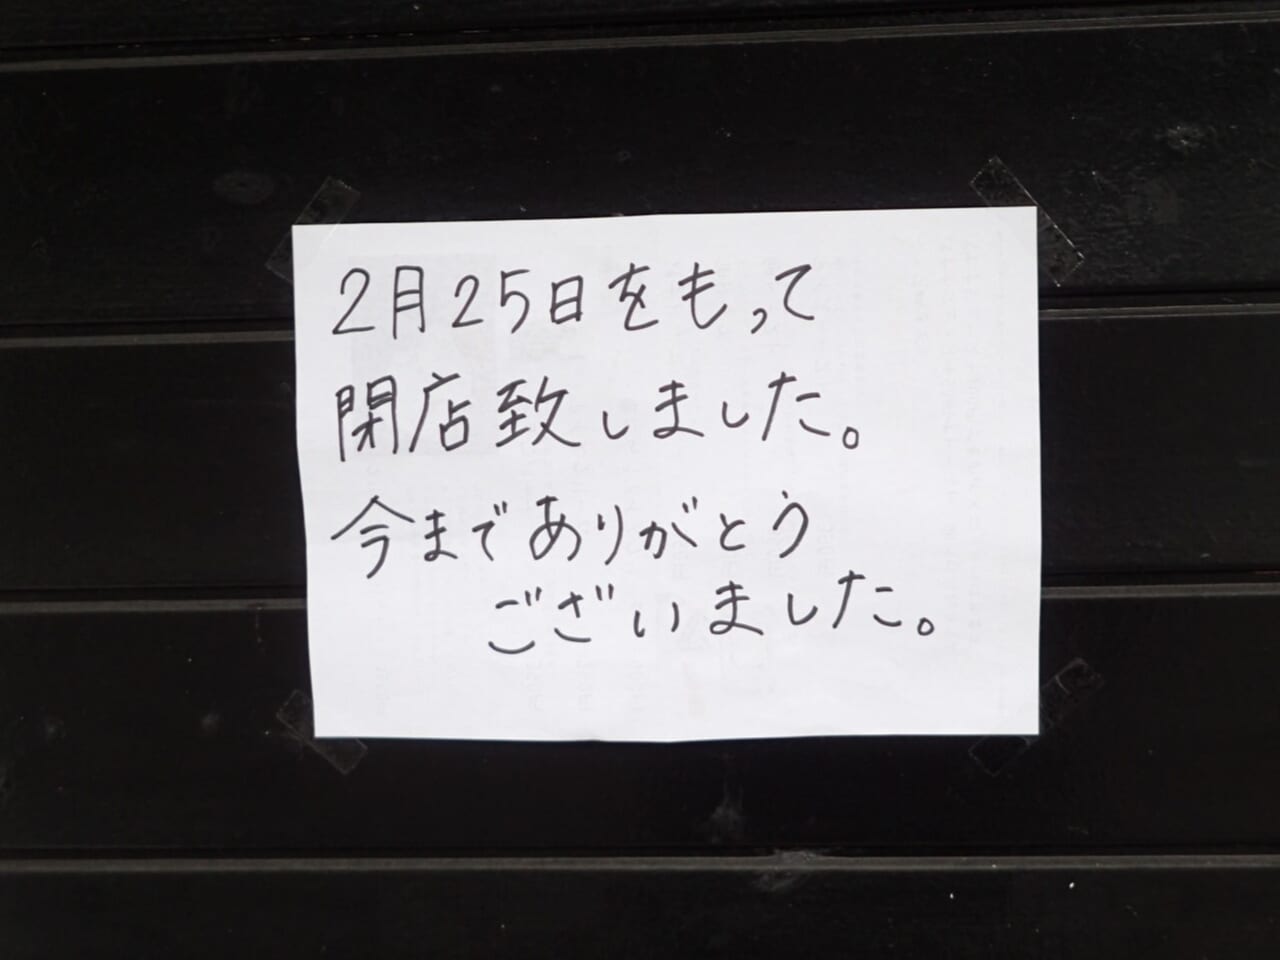 2月25日をもって
閉店致しました。
今までありがとう
ございました。